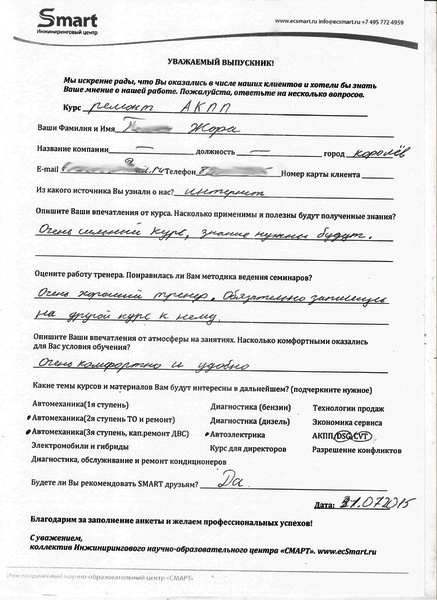 Smart
Инжиниринговый центр
www.ecsmart.ru info@ecsmart.ru +7 495 772-4959
УВАЖАЕМЫЙ ВЫПУСКНИК!
Мы искренне рады, что Вы оказались в числе наших клиентов и хотели бы знать
Ваше мнение о нашей работе. Пожалуйста, ответьте на несколько вопросов.
Курс ремонт АКПП
Ваши Фамилия и Имя Жора
Название компании — должность — город королёв
E-mail Телефон Номер карты клиента
Из какого источника Вы узнали о нас? интернет
Опишите Ваши впечатления от курса. Насколько применимы и полезны будут полученные знания?
Очень сильный курс, знание нужны будут.
Оцените работу тренера. Понравилась ли Вам методика ведения семинаров?
Очень хороший тренер. Обязательно запишусь
на другой курс к нему.
Опишите Ваши впечатления от атмосферы на занятиях. Насколько комфортными оказались
для Вас условия обучения?
Очень комфортно и удобно
Какие темы курсов и материалов Вам будут интересны в дальнейшем? (подчеркните нужное)
Автомеханика(1я ступень) Диагностика (бензин) Технологии продаж
Автомеханика(2я ступень ТО и ремонт) Диагностика (дизель) Экономика сервиса
Автомеханика(3я ступень, кап.ремонт ДВС) Автоэлектрика АКПП/DSG/CVT
Электромобили и гибриды Курс для директоров Разрешение конфликтов
Диагностика, обслуживание и ремонт кондиционеров
Будете ли Вы рекомендовать SMART друзьям? Да.
Дата: 21.07.2015
Благодарим за заполнение анкеты и желаем профессиональных успехов!
С уважением,
коллектив Инжинирингового научно-образовательного центра «СМАРТ». www.ecSmart.ru
Инжиниринговый научно-образовательный центр «СМАРТ»